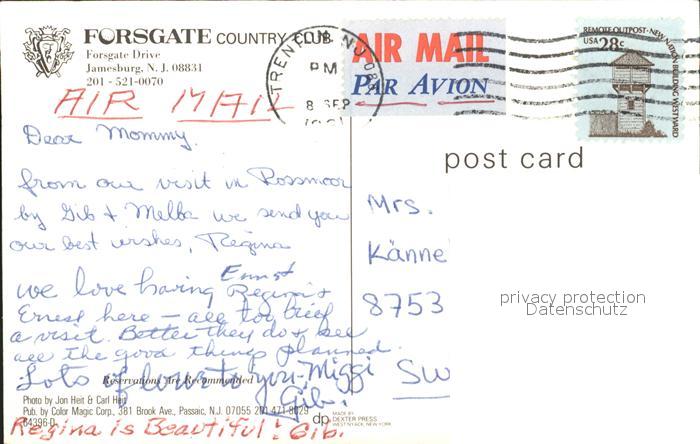 FORSGATE COUNTRY CLUB
Forsgate Drive
Jamesburg, N. J. 08831
201 - 521-0070
AIR MAIL
TRENTON, NJ 086
PM
8 SEP
AIR MAIL
PAR AVION
REMOTE OUTPOST · NEW NATION BUILDING WESTWARD
USA 28c
post card
Dear Mommy,
from our visit in Rossmoor
by Gib & Melba we send you
our best wishes, Regina
Ernst
we love having Regina &
Ernest here - all too brief
a visit. Better they do & see
all the good things planned.
Lots of love to you, Miggi
Gib.
Reservations Are Recommended
Photo by Jon Heit & Carl Heit
Pub. by Color Magic Corp., 381 Brook Ave., Passaic, N.J. 07055 201 471-8029
64396-D
dp MADE BY
DEXTER PRESS
WEST NYACK, NEW YORK
Regina is Beautiful! Gib.
Mrs.
Känne
8753
SW
privacy protection
Datenschutz